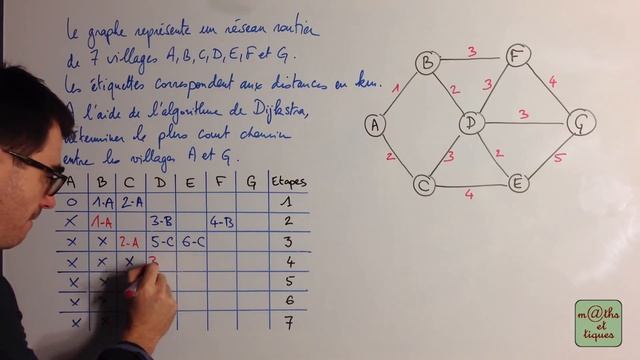 Le graphe représente un réseau routier
de 7 villages A, B, C, D, E, F et G.
Les étiquettes correspondent aux distances en km.
A l'aide de l'algorithme de Dijkstra,
déterminer le plus court chemin
entre les villages A et G.
A B C D E F G Etapes
0 1-A 2-A 1
X 1-A 3-B 4-B 2
X X 2-A 5-C 6-C 3
X X X 3 4
X X 5
X X 6
X X 7
B 3 F
1 2 3 4
A D 3 G
2 3 2 5
C 4 E
m@ths
et
tiques